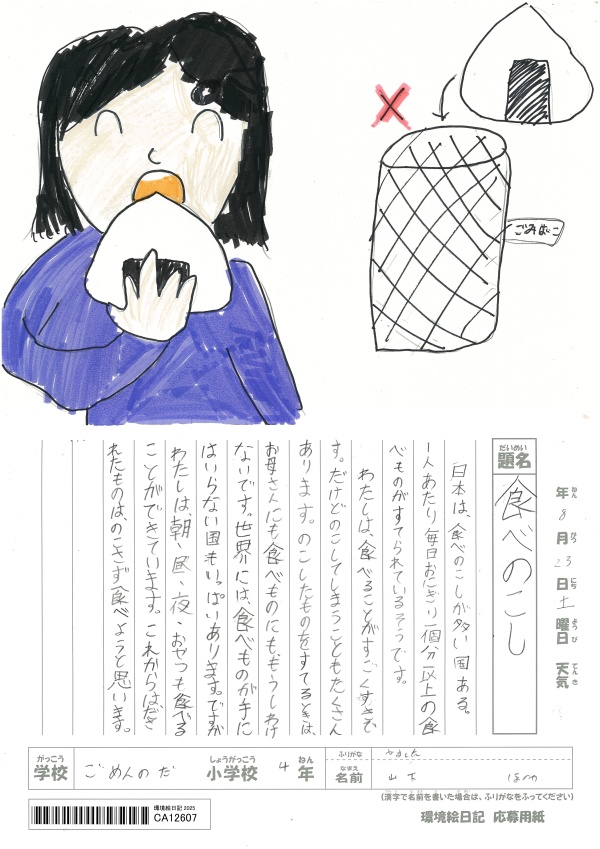 ごみばこ
年 8月23日 土曜日 天気
ねん がつ にち ようび てんき
だいめい
題名 食べのこし
日本は、食べのこしが多い国ある。
1人あたり毎日おにぎり一個分以上の食
べものがすてられているそうです。
わたしは、食べることがすごくすきで
す。だけどのこしてしまうこともたくさん
あります。のこしたものをすてるときは、
お母さんにも食べものにも、もうしわけ
ないです。世界には、食べものが手に
はいらない国もいっぱいあります。ですが
わたしは、朝、昼、夜、おやつも食べる
ことができています。これからはださ
れたものはのこさず食べようと思います。
がっこう しょうがっこう ねん
学校 ごめんのだ 小学校 4年
ふりがな やました
なまえ
名前 山下 ほのか
(漢字で名前を書いた場合は、ふりがなをふってください)
環境絵日記 2025
CA12607
環境絵日記 応募用紙